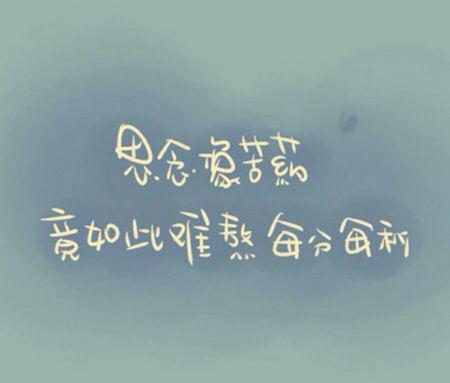 思念像苦药
竟如此难熬 每分每秒